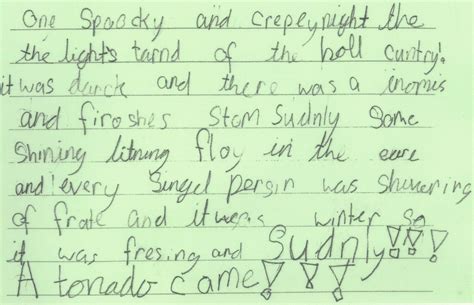 One Spoocky and crepey night the
the light's tarnd of the holl cuntry!
it was darck and there was a inomis
and firoshes Stom Sudnly Some
Shining litning floy in the eare
and every Singel persin was shivering
of frate and it was winter so
it was fresing and Sudnly!!!
A tonado came!!!